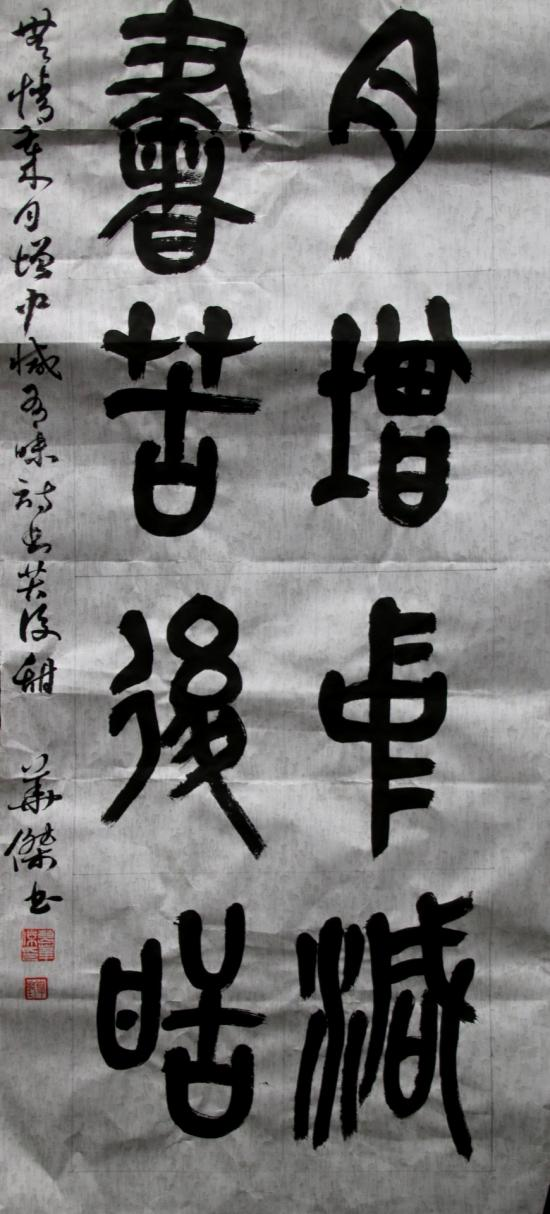 月增中減
書苦後甜
無情歲月增中減有味詩書苦後甜 華傑書